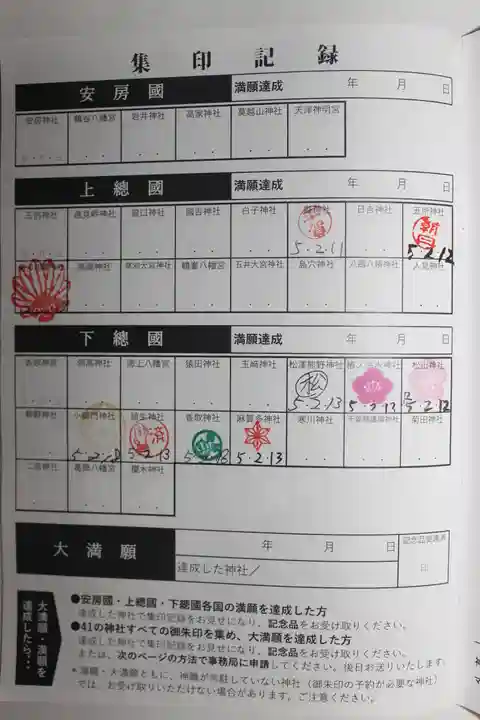 集印記録
安房國 満願達成 年 月 日
安房神社 鶴谷八幡宮 岩井神社 高家神社 莫越山神社 天津神明宮
上總國 満願達成 年 月 日
玉前神社 遠見岬神社 瀧口神社 國吉神社 白子神社 日吉神社
5.2.11 朝日 5.2.12
飽富神社 鶴峯八幡宮 五井大宮神社 島穴神社 人見神社
下總國 満願達成 年 月 日
香取神宮 側高神社 海上八幡宮 猿田神社 玉﨑神社 松澤熊野神社 松山神社
松 5.2.13 5.2.13 5.2.12
小御門神社 埴生神社 香取神社 麻賀多神社 寒川神社 千葉縣護國神社 菊田神社
5.2.18 済 5.2.13 5.2.13 5.2.13
二宮神社 葛飾八幡宮 櫻木神社
大満願 年 月 日 記念品受渡済
達成した神社／ 印
大満願・満願を達成したら・・・
●安房國・上總國・下總國各国の満願を達成した方
達成した神社で集印記録をお見せになり、記念品をお受け取りください。
●41の神社すべての御朱印を集め、大満願を達成した方
達成した神社で集印記録をお見せになり、記念品をお受け取りください。
または、次のページの方法で事務局に申請してください。後日お送りいたします
＊満願・大満願ともに、神職が常駐していない神社（御朱印の予約が必要な神社）
では、お受け取りいただけない場合があります。ご注意ください。